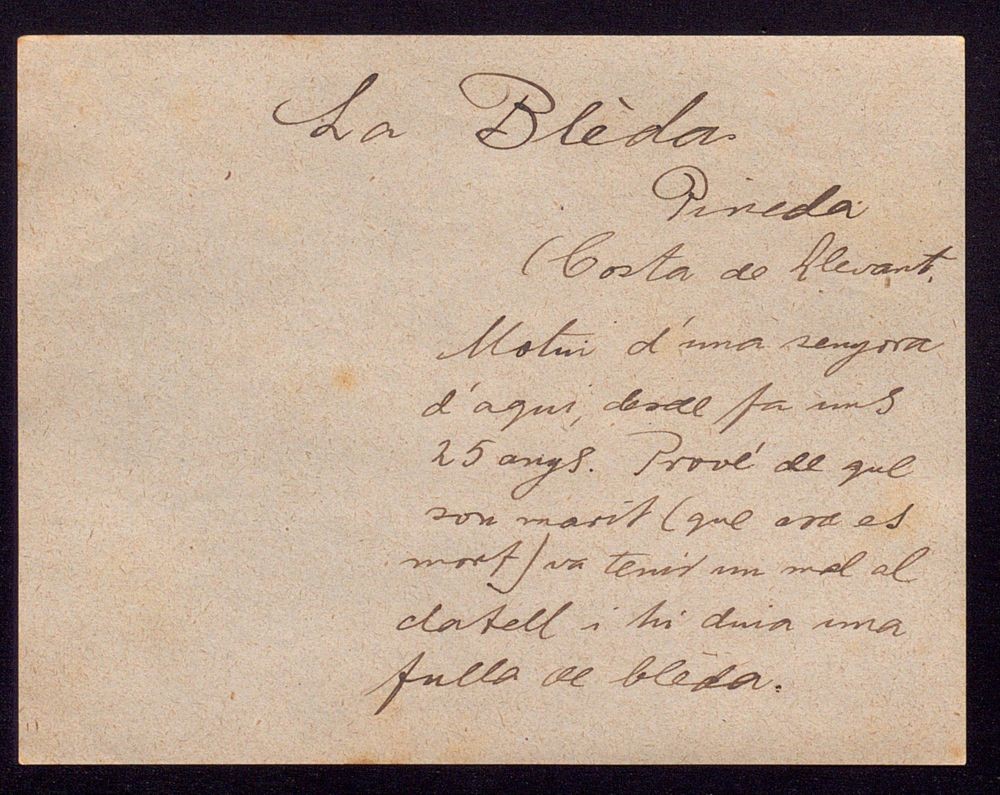 La Blèda
Pineda
(Costa de Llevant.
Motiu d'una senyora
d'aqui, desde fa uns
25 anys. Prové de que
son marit (que ara es
mort) va tenir un mal al
clatell i hi duia una
fulla de blèda.